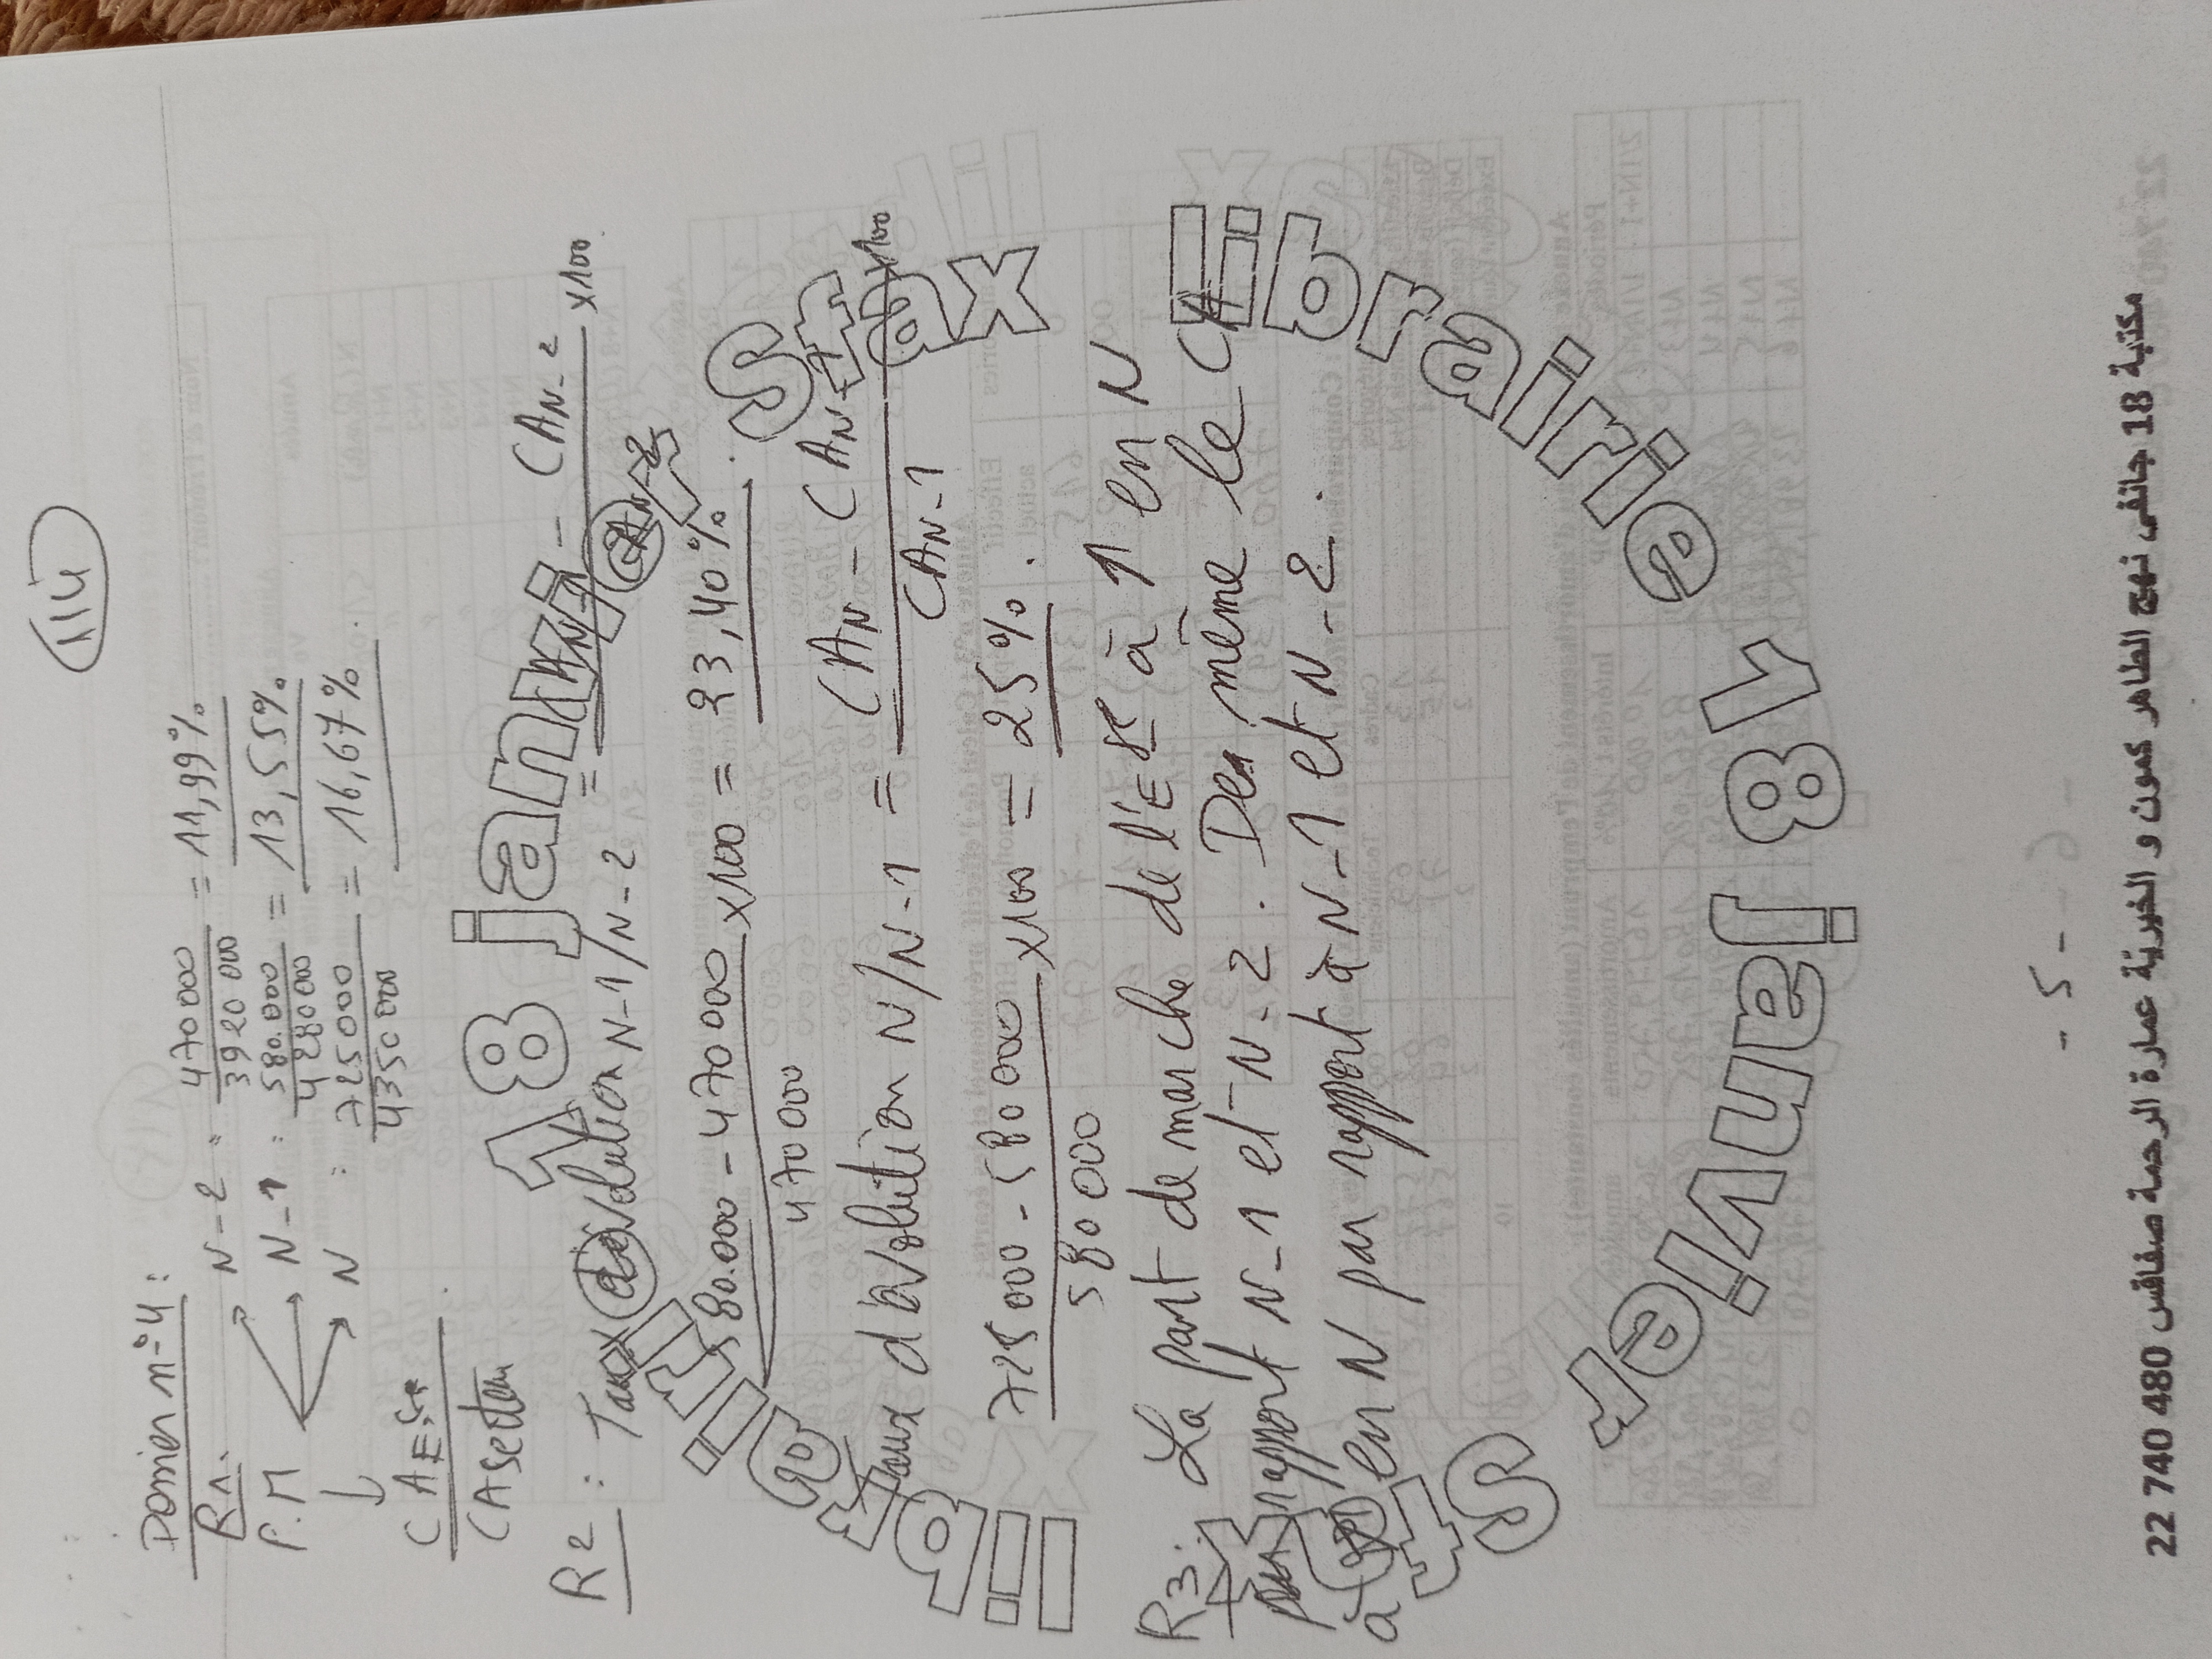 114
Dossier n°4 :
R1.
P.M N-2 : 470 000 / 3920 000 = 11,99%
N-1 : 580.000 / 4 280 000 = 13,55%
N : 725 000 / 4350 000 = 16,67%
CA Ese
CA secteur
18 janvier
R2 : Taux d'évolution N-1/N-2 = CAN-1 - CAN-2 / CAN-2 x100
580.000 - 470 000 / 470 000 x100 = 23,40%
Taux d'évolution N/N-1 = CAN - CAN-1 / CAN-1 x100
725 000 - 580 000 / 580 000 x100 = 25%.
R3: La part de marché de l'ESE à ↑ en N
par rapport N-1 et N-2. De même le CA
à en N par rapport à N-1 et N-2.
librairie 18 janvier Sfax
- 5 -
مكتبة 18 جانفي نهج الطاهر كمون و الخيرية عمارة الرحمة صفاقس 480 740 22